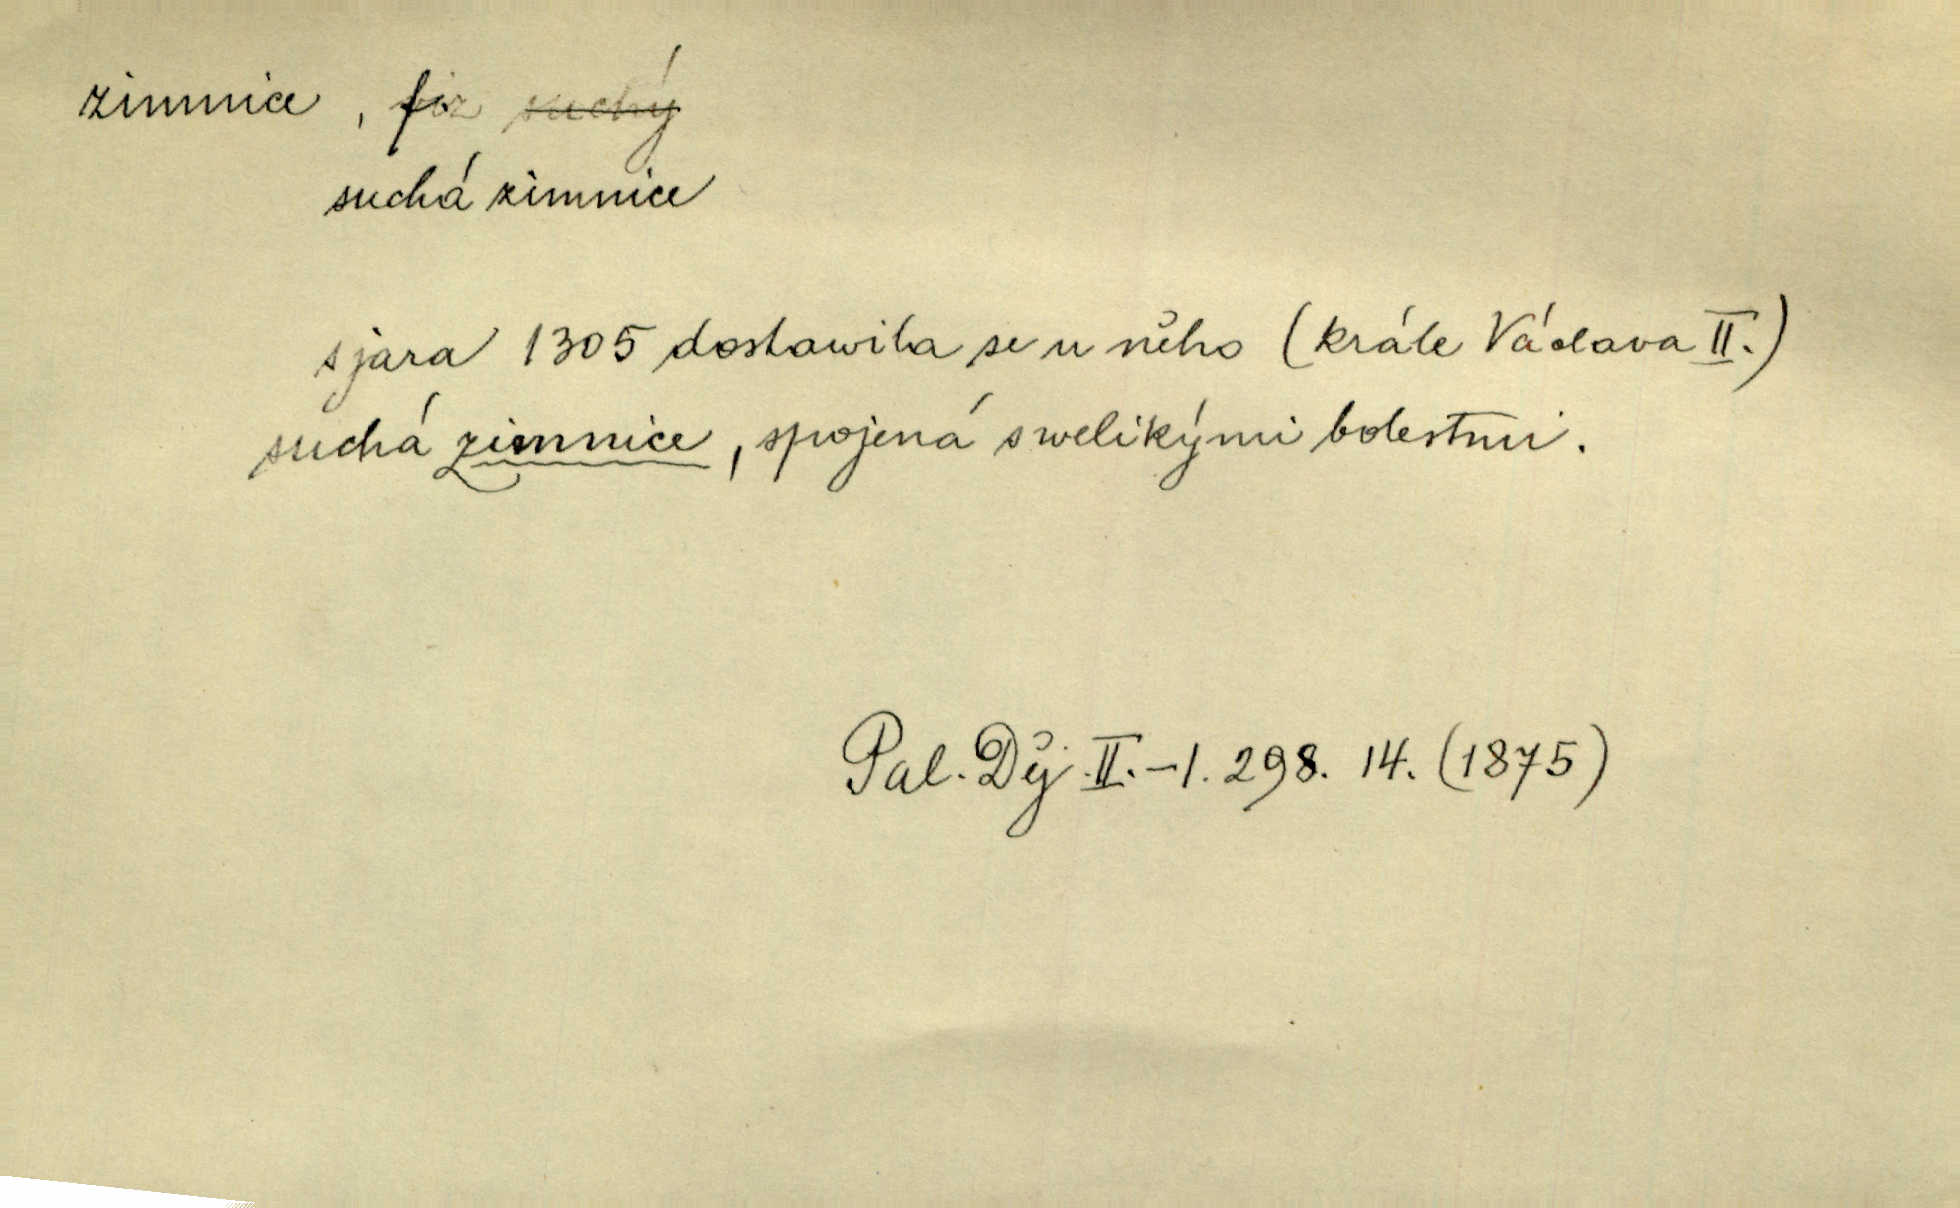 zimnice, fiz suchý
suchá zimnice
s jara 1305 dostawila se u něho (krále Václava II.)
suchá zimnice, spojená s welikými bolestmi.
Pal. Děj. II.-1. 298. 14. (1875)